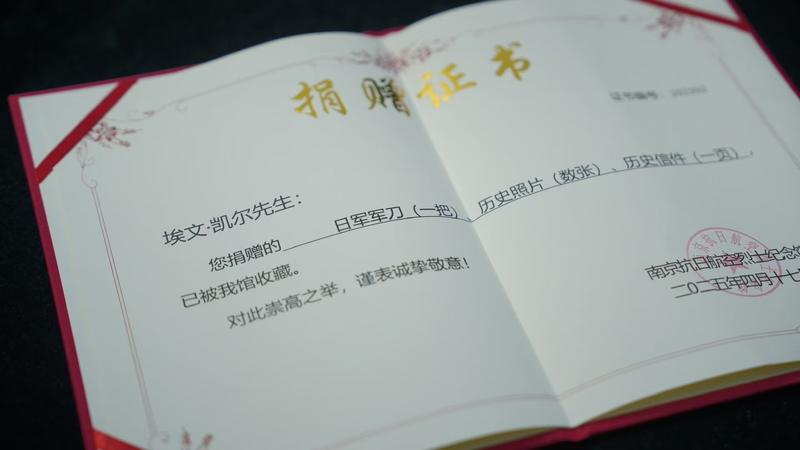 捐赠证书
证书编号：
埃文·凯尔先生：
您捐赠的 日军军刀（一把）、历史照片（数张）、历史信件（一页），
已被我馆收藏。
对此崇高之举，谨表诚挚敬意！
南京抗日航空烈士纪念馆
二〇二五年四月十七